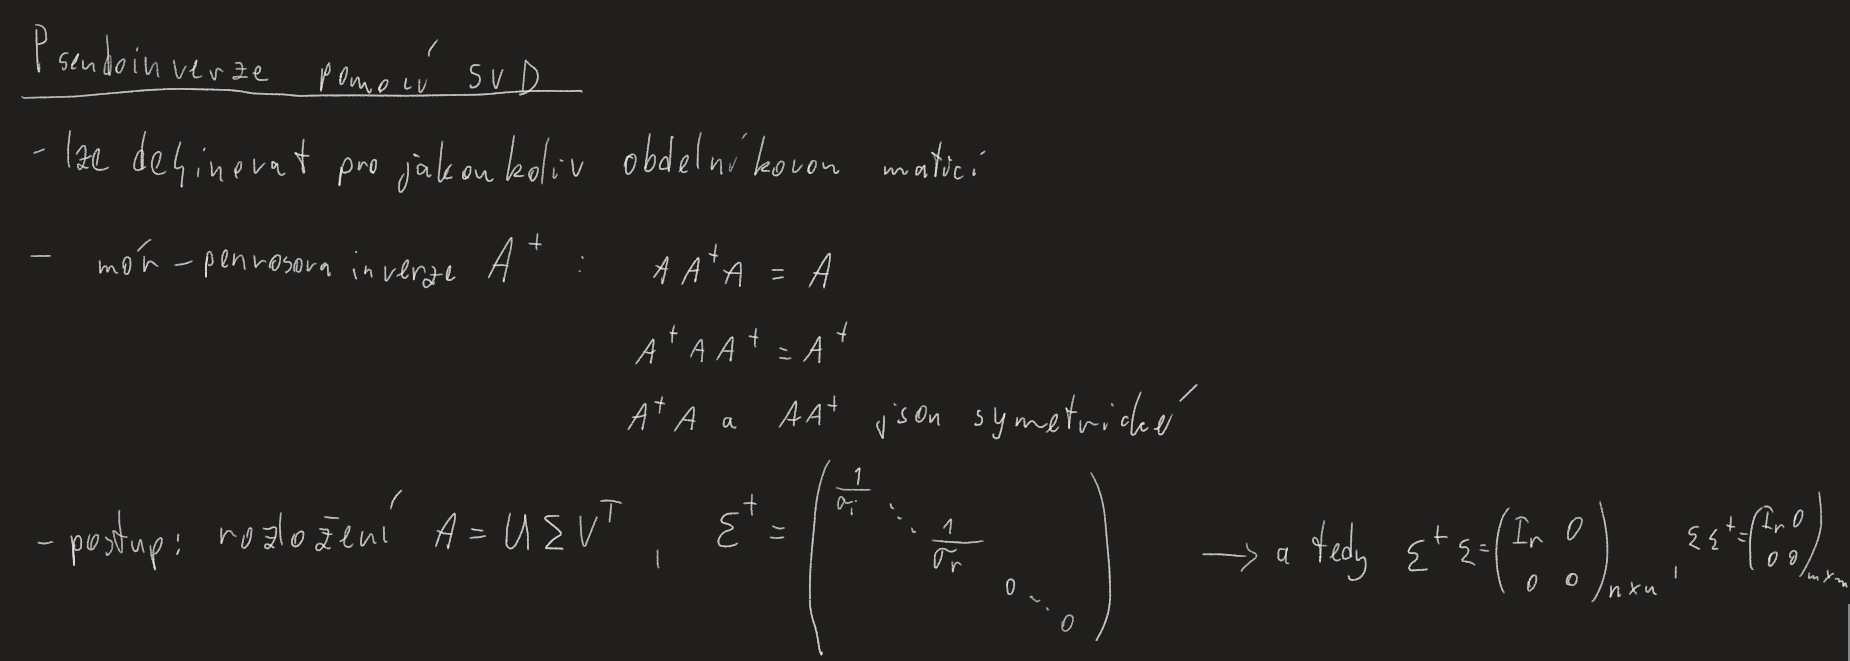 Pseudoinverze pomocí SVD
- lze definovat pro jakoukoliv obdelníkovou matici
- mór-penrosova inverze A⁺ : A A⁺ A = A
A⁺ A A⁺ = A⁺
A⁺ A a A A⁺ jsou symetrické
- postup: rozložení A = U Σ Vᵀ, Σ⁺ = ( 1/σ₁ ⋱ 1/σᵣ 0 ⋱ 0 ) → a tedy Σ⁺ Σ = ( Iᵣ 0 0 0 )ₙₓₙ, Σ Σ⁺ = ( Iᵣ 0 0 0 )ₘₓₘ